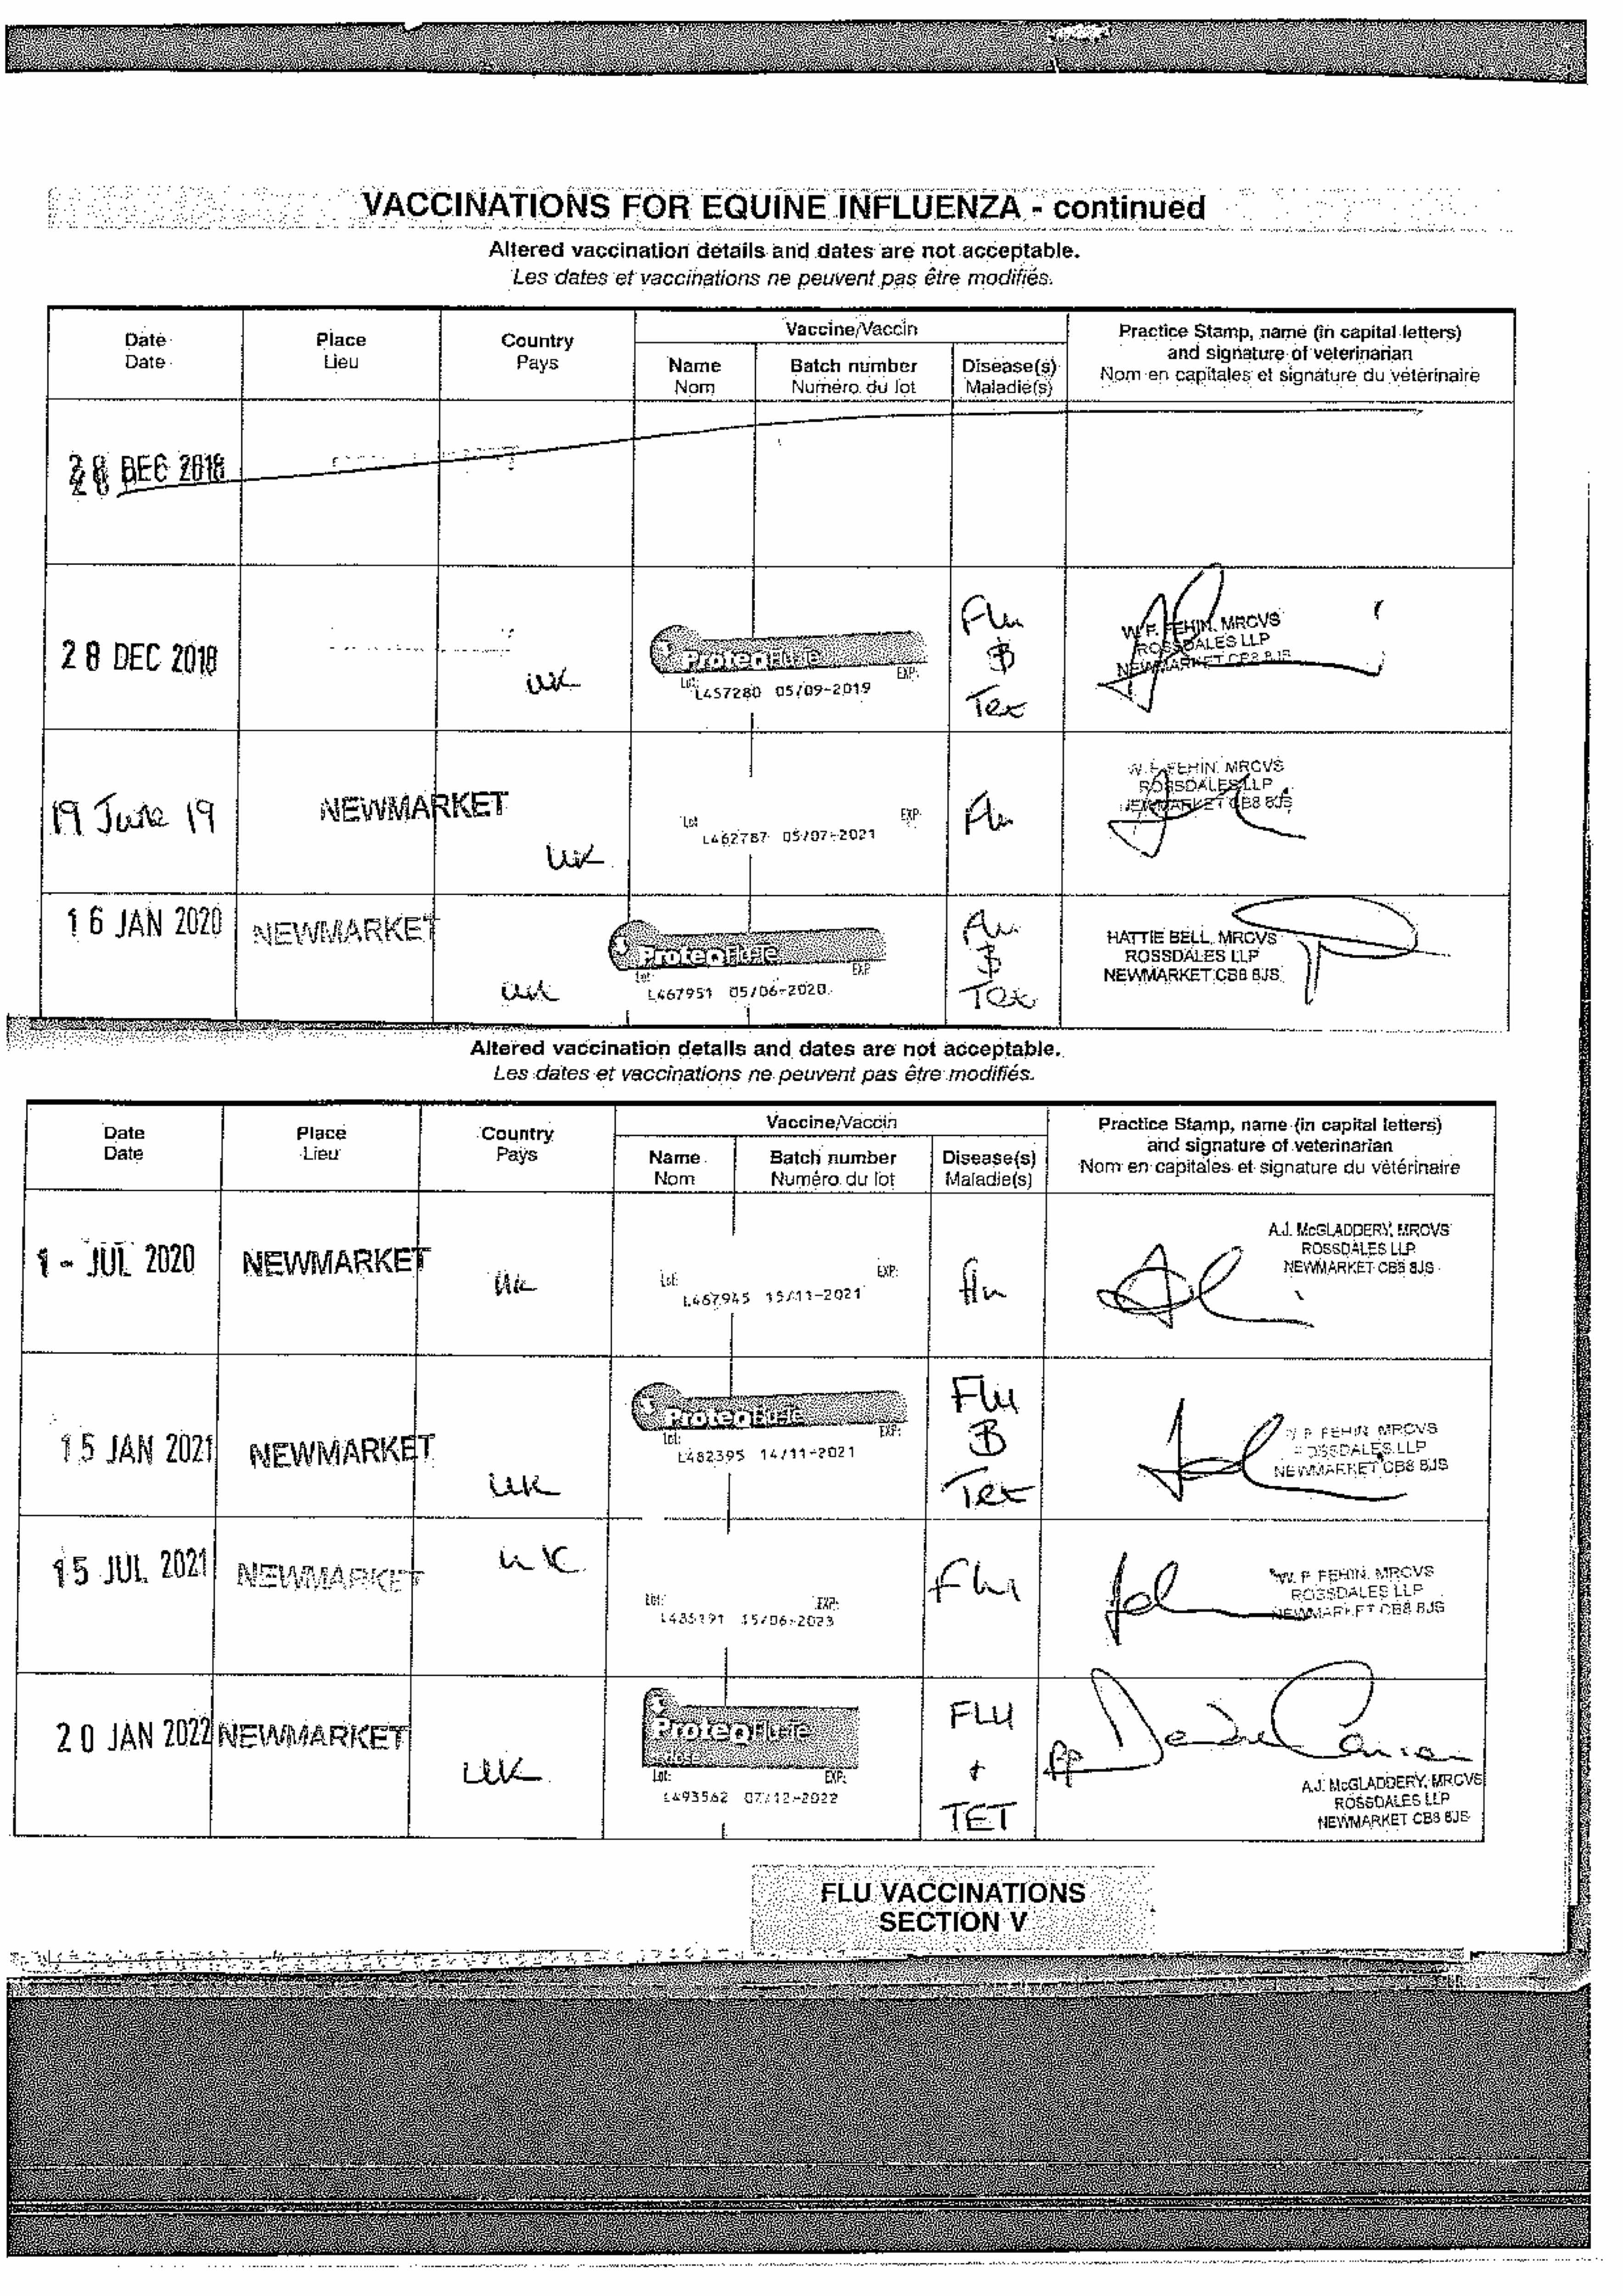 VACCINATIONS FOR EQUINE INFLUENZA - continued
Altered vaccination details and dates are not acceptable.
Les dates et vaccinations ne peuvent pas être modifiés.
Date Place Country Vaccine/Vaccin Practice Stamp, name (in capital letters)
Date Lieu Pays Name Batch number Disease(s) and signature of veterinarian
Nom Numéro du lot Maladie(s) Nom en capitales et signature du vétérinaire
28 DEC 2018
28 DEC 2018 UK ProteqFlu-Te Flu
Lot: EXP:
L457280 05/09-2019 Tet
W.F. FEHIN, MRCVS
ROSSDALES LLP
NEWMARKET CB8 8JS
19 June 19 NEWMARKET UK
Lot EXP:
L462787 05/07-2021 Flu
W.F. FEHIN, MRCVS
ROSSDALES LLP
NEWMARKET CB8 8JS
16 JAN 2020 NEWMARKET UK ProteqFlu-Te Flu
Lot: EXP
L467951 05/06-2020 Tet
HATTIE BELL, MRCVS
ROSSDALES LLP
NEWMARKET CB8 8JS
Altered vaccination details and dates are not acceptable.
Les dates et vaccinations ne peuvent pas être modifiés.
Date Place Country Vaccine/Vaccin Practice Stamp, name (in capital letters)
Date Lieu Pays Name Batch number Disease(s) and signature of veterinarian
Nom Numéro du lot Maladie(s) Nom en capitales et signature du vétérinaire
1 - JUL 2020 NEWMARKET UK
Lot: EXP:
L467945 15/11-2021 flu
A.J. McGLADDERY, MRCVS
ROSSDALES LLP
NEWMARKET CB8 8JS
15 JAN 2021 NEWMARKET UK ProteqFlu-Te Flu
Lot: EXP:
L482395 14/11-2021 Tet
W F FEHIN MRCVS
ROSSDALES LLP
NEWMARKET CB8 8JS
15 JUL 2021 NEWMARKET UK Flu
Lot: EXP:
15/06-2023
W. F. FEHIN. MRCVS
ROSSDALES LLP
NEWMARKET CB8 8JS
20 JAN 2022 NEWMARKET UK ProteqFlu-Te FLU
dose +
Lot: EXP: TET
L493562 07/12-2022
pp
A.J. McGLADDERY, MRCVS
ROSSDALES LLP
NEWMARKET CB8 8JS
FLU VACCINATIONS
SECTION V